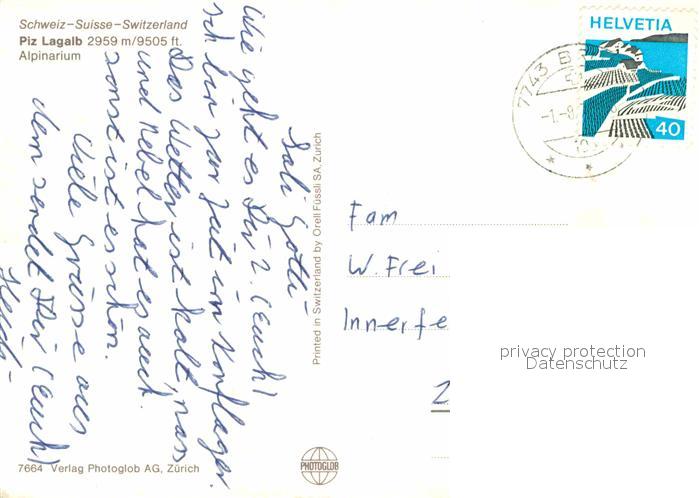 Schweiz–Suisse–Switzerland
Piz Lagalb 2959 m/9505 ft.
Alpinarium
Sali Gotti
Wie geht es Dir? (Euch)
ich bin zur Zeit im Konflager.
Das Wetter ist kalt, nass
und Nebel hat es auch.
sonst ist es schön.
Viele Grüsse aus
dem sendet Dir (Euch)
Printed in Switzerland by Orell Füssli SA, Zürich
HELVETIA
40
7743 B
-1.-8
Fam
W. Frei
Innerfe
privacy protection
Datenschutz
7664 Verlag Photoglob AG, Zürich
PHOTOGLOB